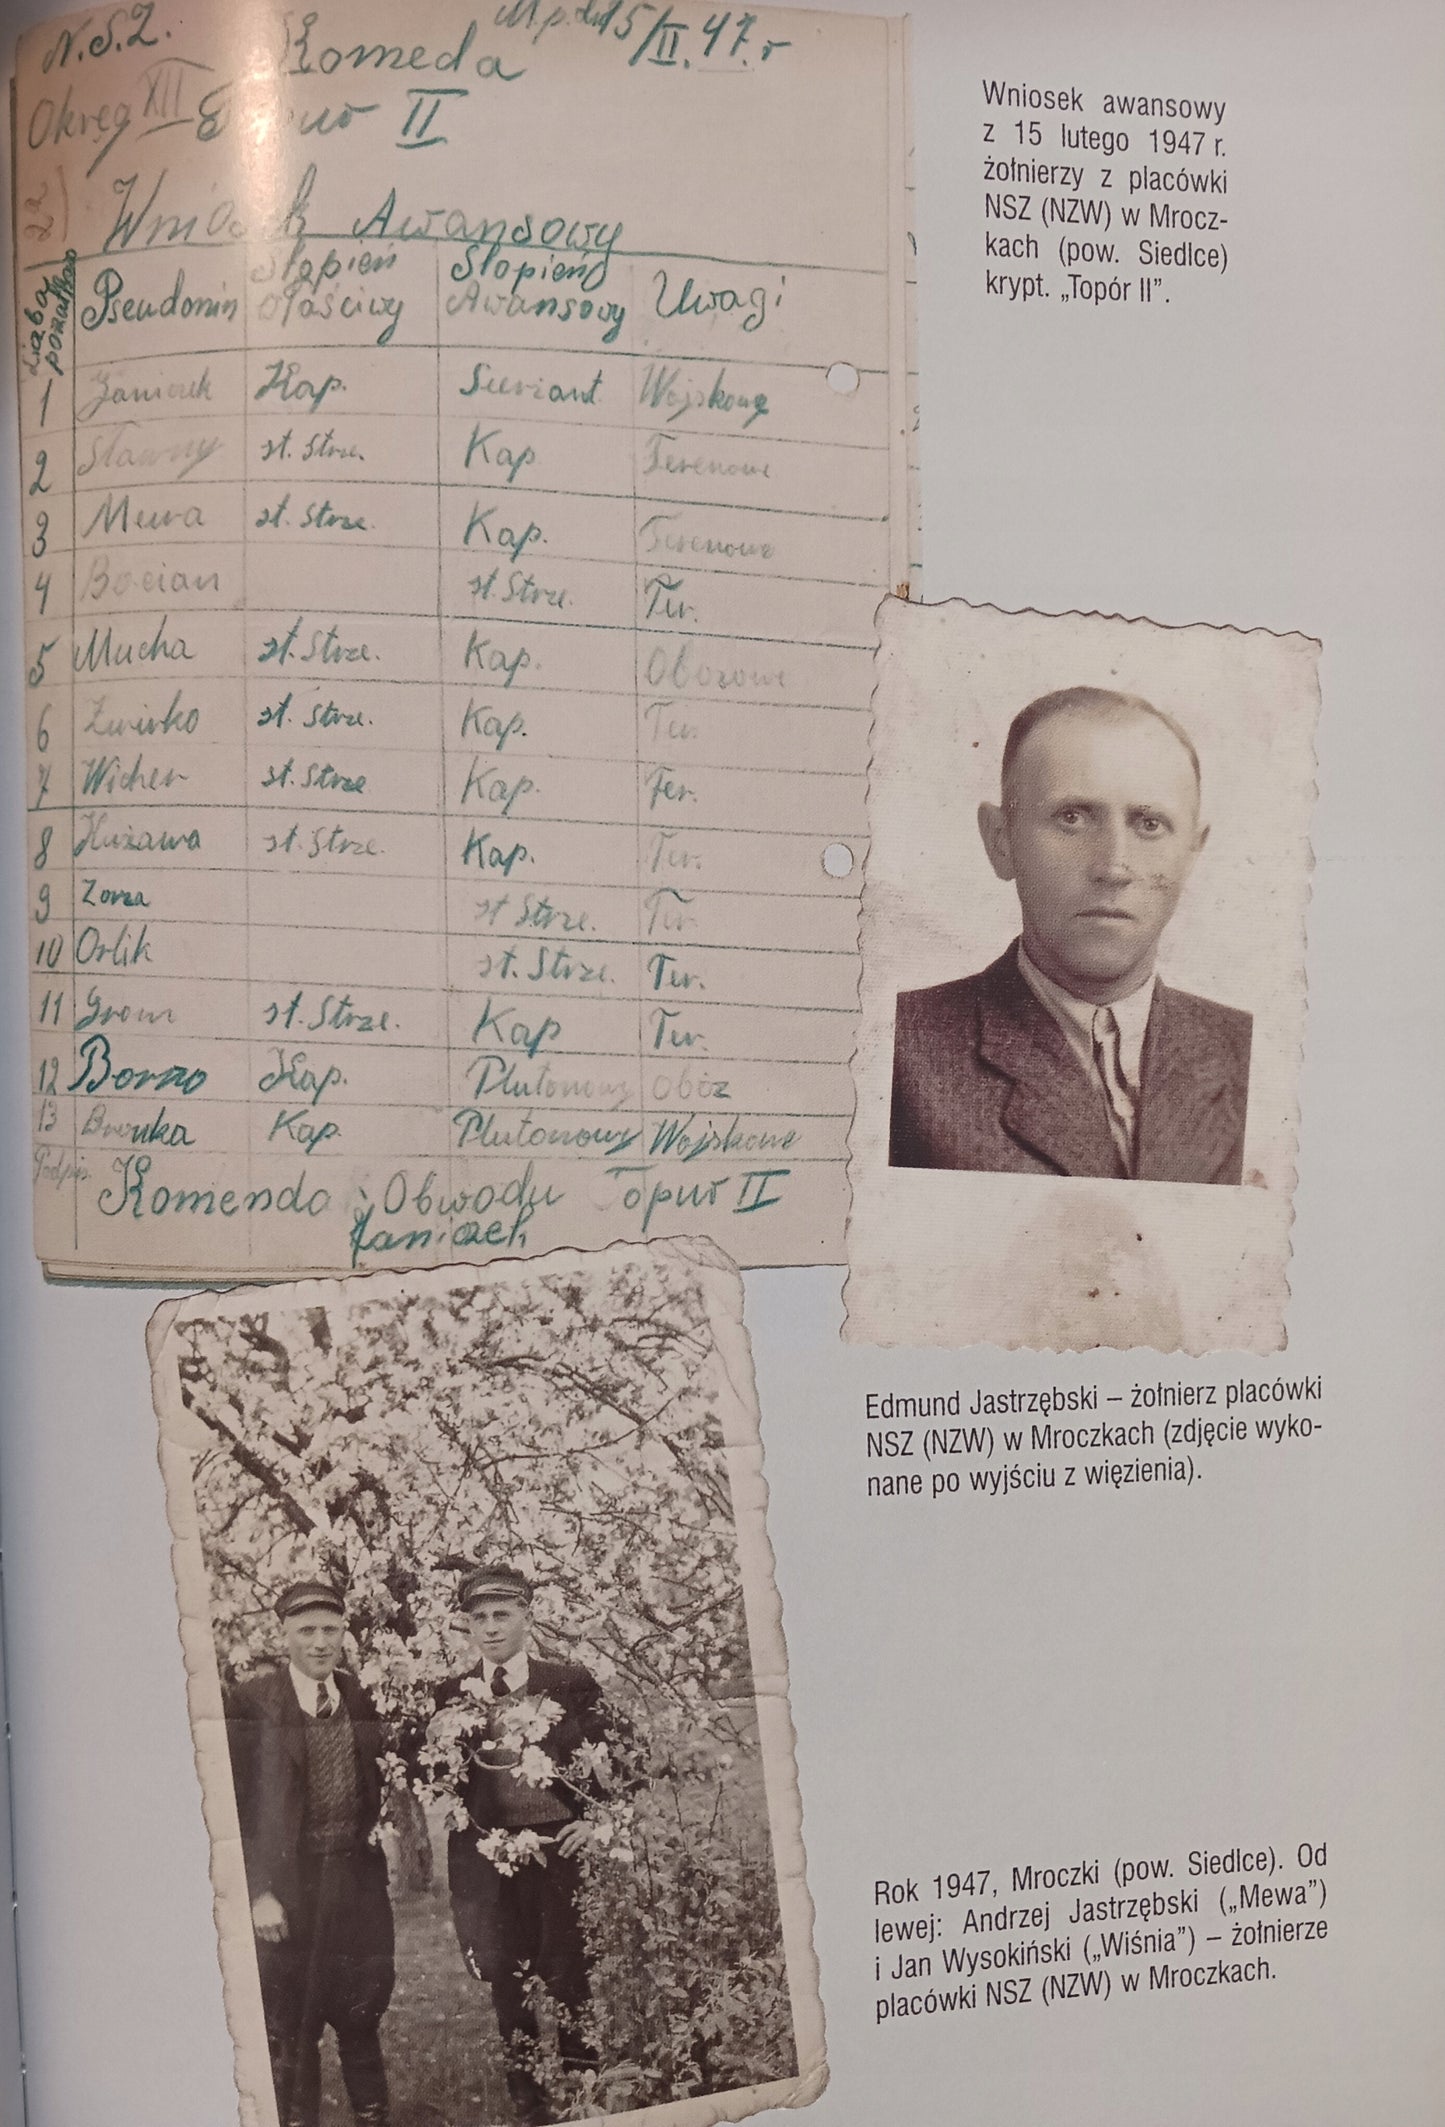 N.S.Z. Komeda M.p. dn 15/II.47.r
Okręg XII Topur II
Wniosek Awansowy
Liczba
Pseudonim Stopień właściwy Stopień Awansowy Uwagi
1 Kap. Sierżant Wojskowe
2 Sławny st. Strze. Kap Terenowe
3 Mewa st. Strze. Kap. Terenowe
4 Bocian st. Strze. Ter.
5 Mucha st. Strze. Kap. Obozowe
6 Żwirko st. Strze. Kap. Ter.
7 Wicher st. Strze Kap. Ter.
8 st. Strze. Kap. Ter.
9 Zorza st Strze. Ter.
10 Orlik st. Strze. Ter.
11 Grom st. Strze. Kap Ter.
12 Kap. Plutonowy Oboz
13 Kap. Plutonowy Wojskowe
Podpis. Komenda Obwodu Topur II
Wniosek awansowy
z 15 lutego 1947 r.
żołnierzy z placówki
NSZ (NZW) w Mrocz-
kach (pow. Siedlce)
krypt. „Topór II”.
Edmund Jastrzębski – żołnierz placówki
NSZ (NZW) w Mroczkach (zdjęcie wyko-
nane po wyjściu z więzienia).
Rok 1947, Mroczki (pow. Siedlce). Od
lewej: Andrzej Jastrzębski („Mewa”)
i Jan Wysokiński („Wiśnia”) – żołnierze
placówki NSZ (NZW) w Mroczkach.